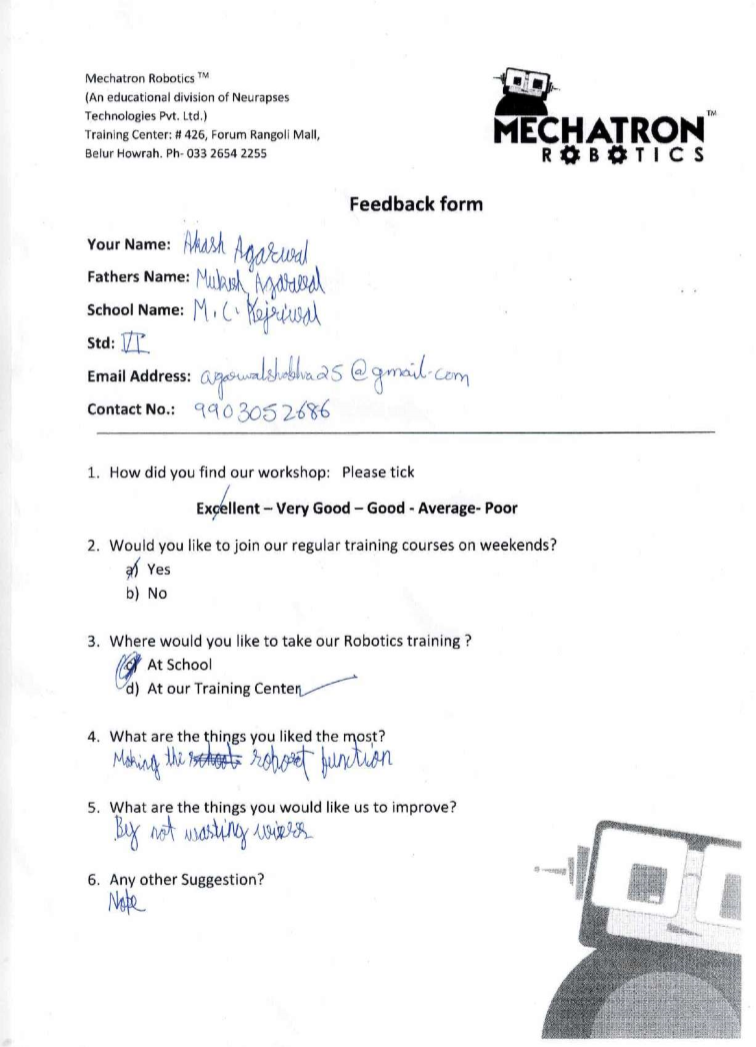 Mechatron Robotics ™
(An educational division of Neurapses
Technologies Pvt. Ltd.)
Training Center: # 426, Forum Rangoli Mall,
Belur Howrah. Ph- 033 2654 2255
MECHATRON ™
ROBOTICS
Feedback form
Your Name: Akash Agarwal
Fathers Name: Mukesh Agarwal
School Name: M.C. Kejriwal
Std: VI
Email Address: agarwalshobha25@gmail.com
Contact No.: 9903052686
1. How did you find our workshop: Please tick
Excellent – Very Good – Good - Average- Poor
2. Would you like to join our regular training courses on weekends?
a) Yes
b) No
3. Where would you like to take our Robotics training ?
c) At School
d) At our Training Center
4. What are the things you liked the most?
Making the robot function
5. What are the things you would like us to improve?
By not wasting wires
6. Any other Suggestion?
Nope